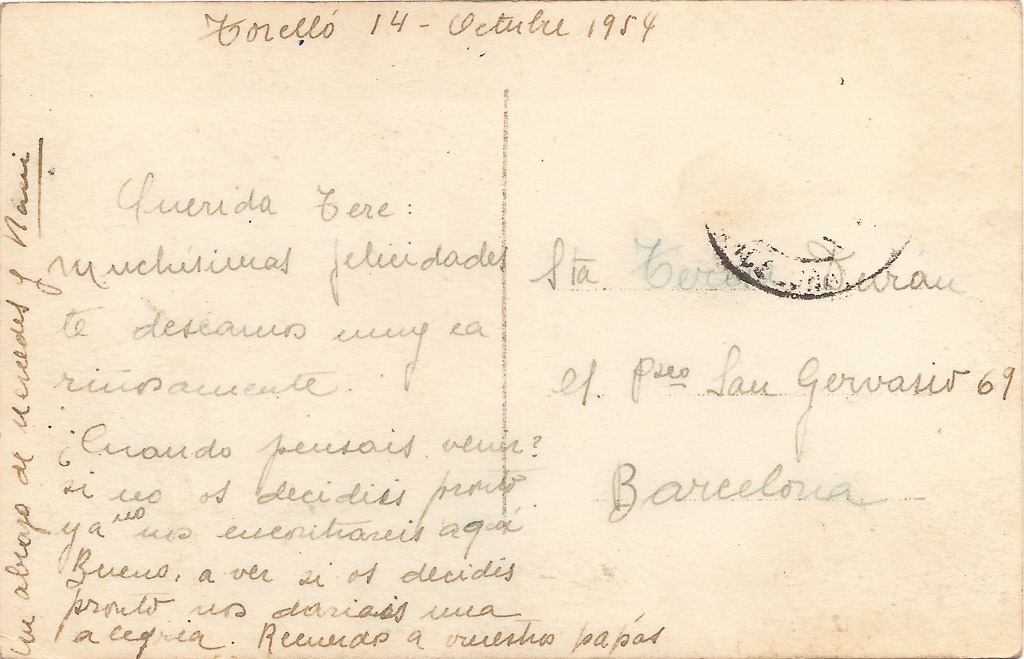 Torelló 14 - Octubre 1954
Querida Tere:
muchísimas felicidades
te deseamos muy ca
riñosamente.
¿Cuando pensais venir?
si no os decidiis pronto
ya no nos encontrareis aquí
Bueno, a ver si os decidis
pronto nos dariais una
alegria. Recuerdos a vuestros papás
Un abrazo de Mercedes y
Sta. Teresa Durán
Pseo San Gervasio 69
Barcelona